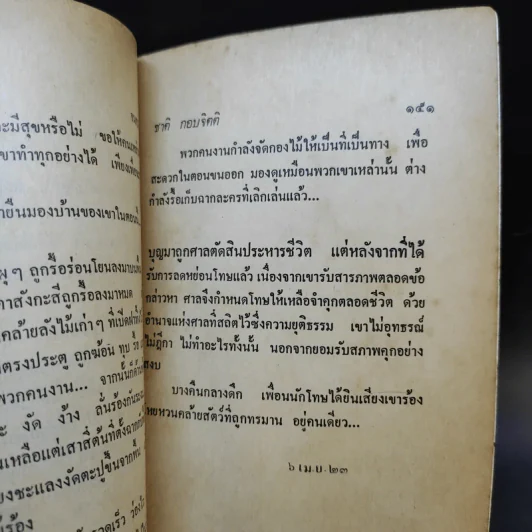 ะมีสุขหรือไม่ ขอให้
ขาทำทุกอย่างได้ เพียง
ายืนมองบ้านของเขาในตอน
ผุๆ ถูกรื้อร่อนโยนลงมา
าสังกะสีถูกรื้อลงมาหมด
คล้ายลังไม้เก่าๆ ที่เปิด
ตรงประตู ถูกฆ้อน ทุบ
พวกคนงาน... จากนั้นก็
ะ งัด ง้าง ลั่นร้อง
นเหลือแต่เสาสี่ต้นที่ตั้ง
ยงชะแลงงัดตะปูขึ้นจากพื้น
ร้อง
าดเร็ว ว่อง
ชาติ กอบจิตติ
๑๕๑
พวกคนงานกำลังจัดกองไม้ให้เป็นที่เป็นทาง เพื่อ
สะดวกในตอนขนออก มองดูเหมือนพวกเขาเหล่านั้น ต่าง
กำลังรื้อเก็บฉากละครที่เลิกเล่นแล้ว...
บุญมาถูกศาลตัดสินประหารชีวิต แต่หลังจากที่ได้
รับการลดหย่อนโทษแล้ว เนื่องจากเขารับสารภาพตลอดข้อ
กล่าวหา ศาลจึงกำหนดโทษให้เหลือจำคุกตลอดชีวิต ด้วย
อำนาจแห่งศาลที่สถิตไว้ซึ่งความยุติธรรม เขาไม่อุทธรณ์
ไม่ฎีกา ไม่ทำอะไรทั้งนั้น นอกจากยอมรับสภาพคุกอย่าง
สงบ
บางคืนกลางดึก เพื่อนนักโทษได้ยินเสียงเขาร้อง
หยหวนคล้ายสัตว์ที่ถูกทรมาน อยู่คนเดียว...
๖ เม.ย. ๒๓